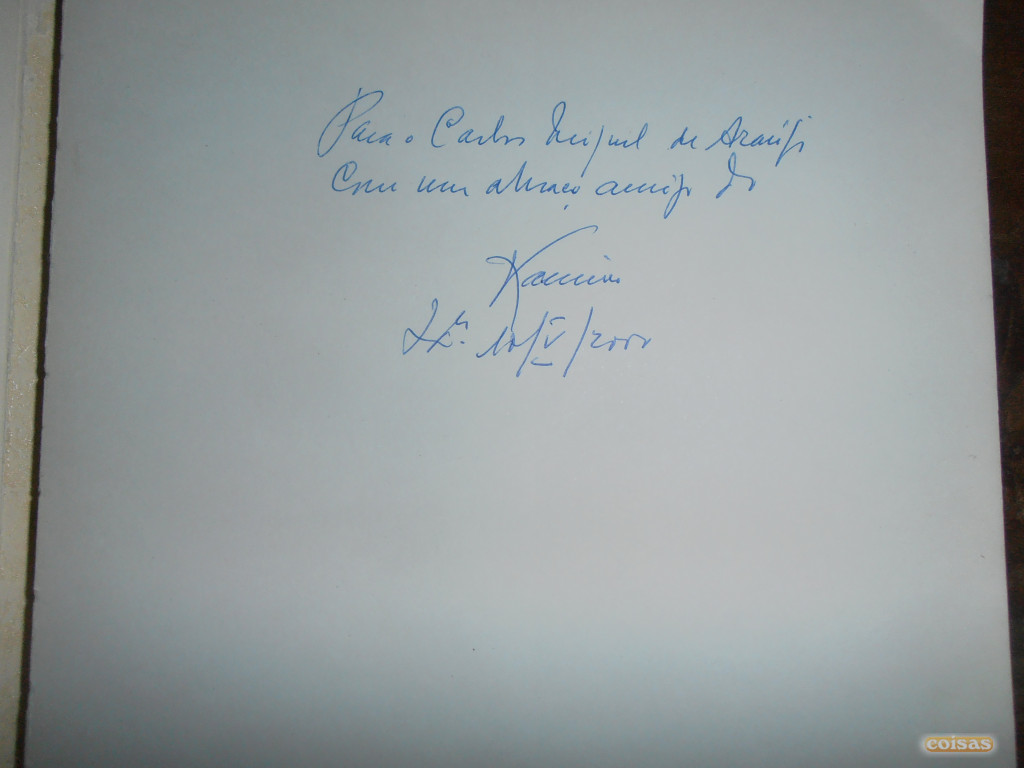 Para o Carlos Miguel de Araújo
Com um abraço amigo do
Ramiro
Lx.ª 10/V/2000
coisas